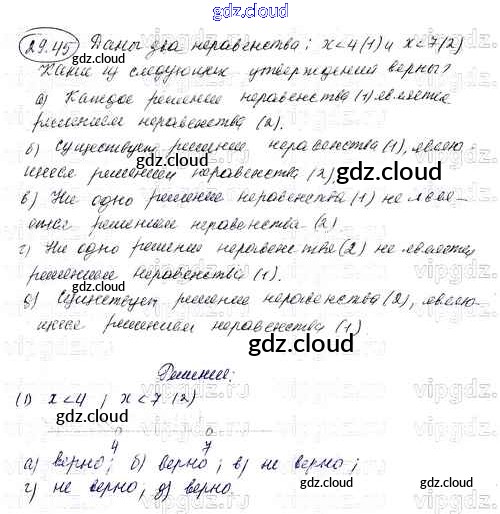 gdz.cloud
gdz.cloud
29.45 Даны два неравенства: x<4 (1) и x<7 (2)
Какие из следующих утверждений верны?
а) Каждое решение неравенства (1) является
решением неравенства (2).
gdz.cloud
б) Существует решение неравенства (1), являю-
щееся решением неравенства (2).
gdz.cloud
в) Ни одно решение неравенства (1) не явля-
ется решением неравенства (2).
г) Ни одно решение неравенства (2) не является
решением неравенства (1).
gdz.cloud
д) Существует решение неравенства (2), являю-
щееся решением неравенства (1)
gdz.cloud
Решение:
(1) x<4 ; x<7 (2)
gdz.cloud
4 7
а) верно; б) верно; в) не верно;
г) не верно, д) верно
gdz.cloud gdz.cloud